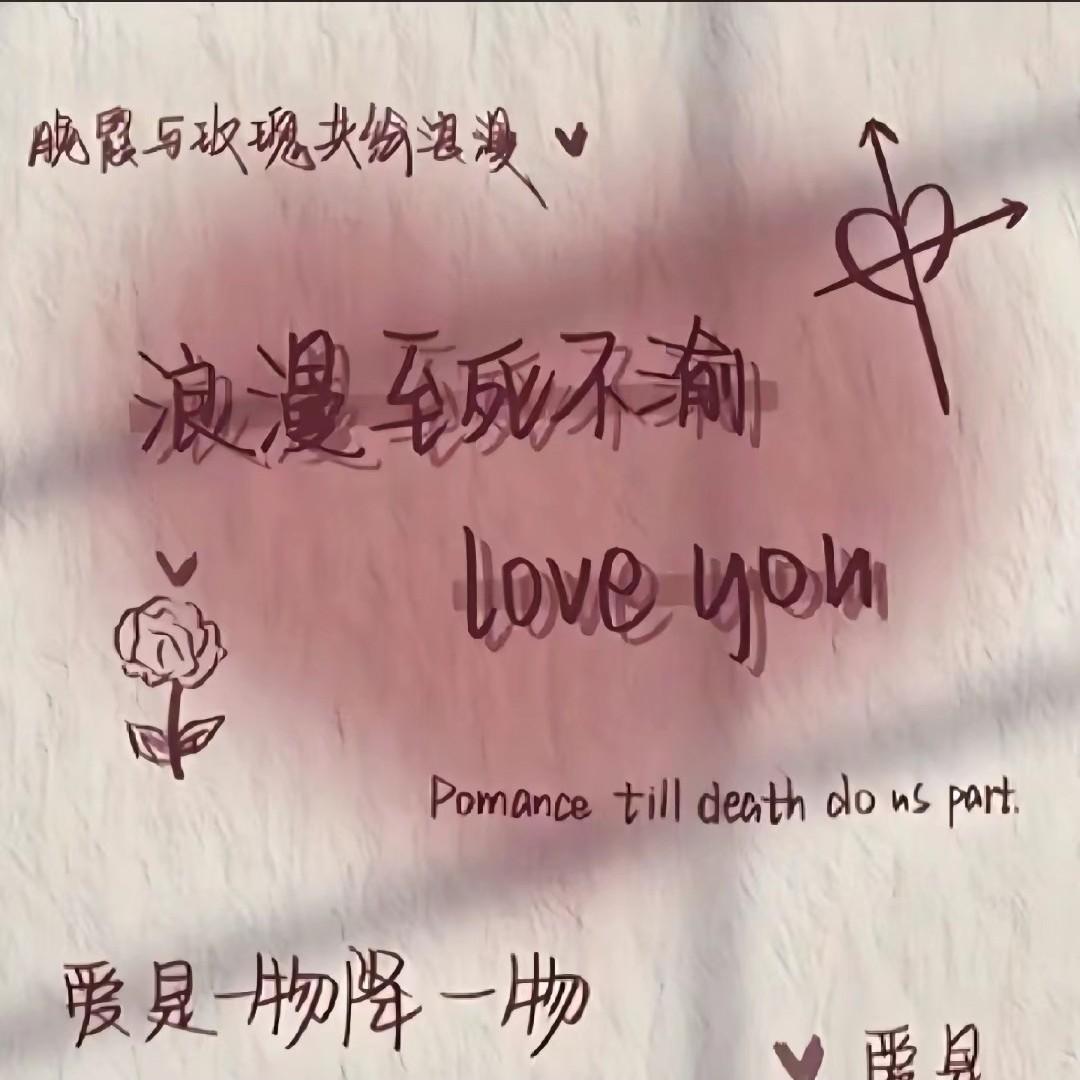 晚霞与玫瑰共绘浪漫
浪漫至死不渝
love you
Pomance till death do us part.
爱是一物降一物
爱是